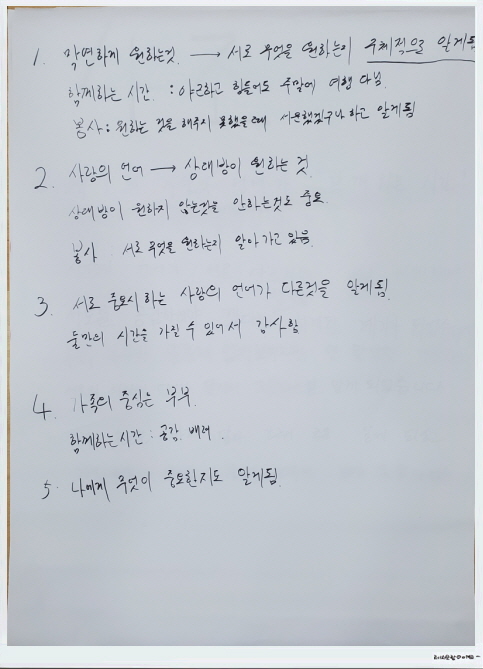 1. 막연하게 원하는것. → 서로 무엇을 원하는지 구체적으로 알게됨
함께하는 시간. : 야근하고 힘들어도 주말에 여행 다님.
봉사 : 원하는 것을 해주지 못했을때 서운했겠구나 하고 알게됨
2. 사랑의 언어 → 상대방이 원하는 것.
상대방이 원하지 않는것을 안하는것도 중요.
봉사 서로 무엇을 원하는지 알아가고 있음.
3. 서로 중요시 하는 사랑의 언어가 다른것을 알게됨.
둘간의 시간을 가질 수 있어서 감사함
4. 가족의 중심는 부부.
함께하는시간 : 공감. 배려.
5. 나에게 무엇이 중요한지도 알게됨.